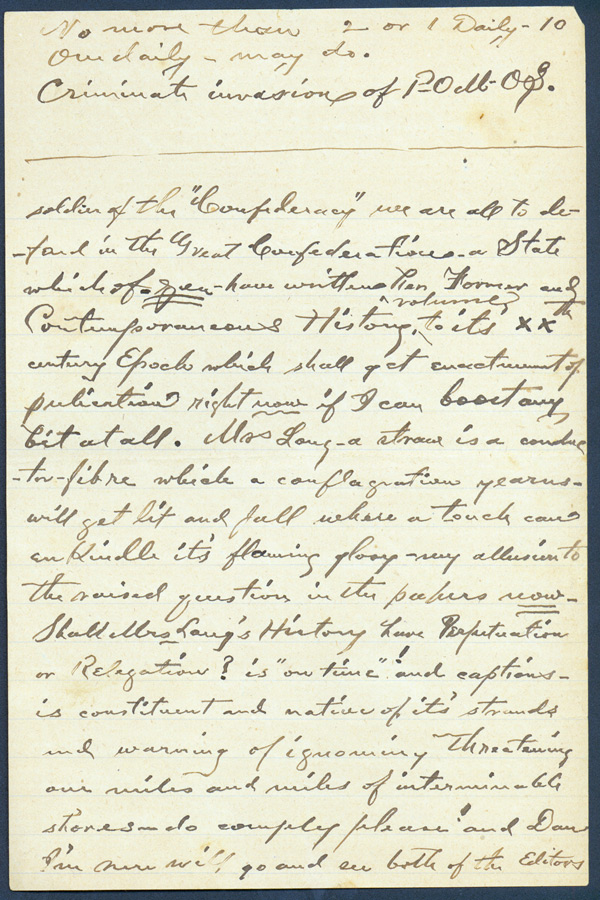 No more than 2 or 1 Daily - 10
One daily - may do.
Criminate invasion of P.O
soldier of the "Confederacy" we are all to de-
-fend in the Great Confederation - a State
which of - you - have written her Former and
volume
Contemporaneous History, to its' XXth
century Epoch which shall get enactment of
publication right now if I can boost any
bit at all. Mrs Long - a straw is a conduc
-tor-fibre which a conflagration yearns -
will get lit and full where a touch can
en Kindle it's flaming glory - my allusion to
the raised question in the papers now -
Shall Mrs Long's History have Perpetuation
or Relegation? is "on time"! and captions -
is constituent and native of it's strands
and warning of ignominy Threatening
our miles and miles of interminable
shores - do comply please! and Dan
I'm sure will, go and see both of the Editors